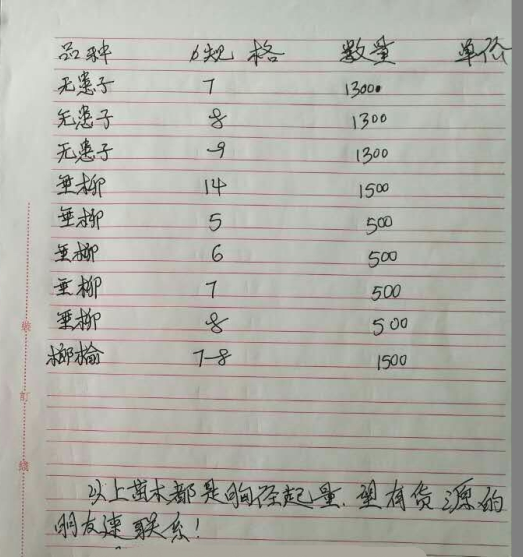 品种 规格 数量 单价
无患子 7 1300
无患子 8 1300
无患子 9 1300
垂柳 14 1500
垂柳 5 500
垂柳 6 500
垂柳 7 500
垂柳 8 500
榔榆 7-8 1500
以上苗木都是胸径起量.望有货源的
朋友速联系!
装
訂
線